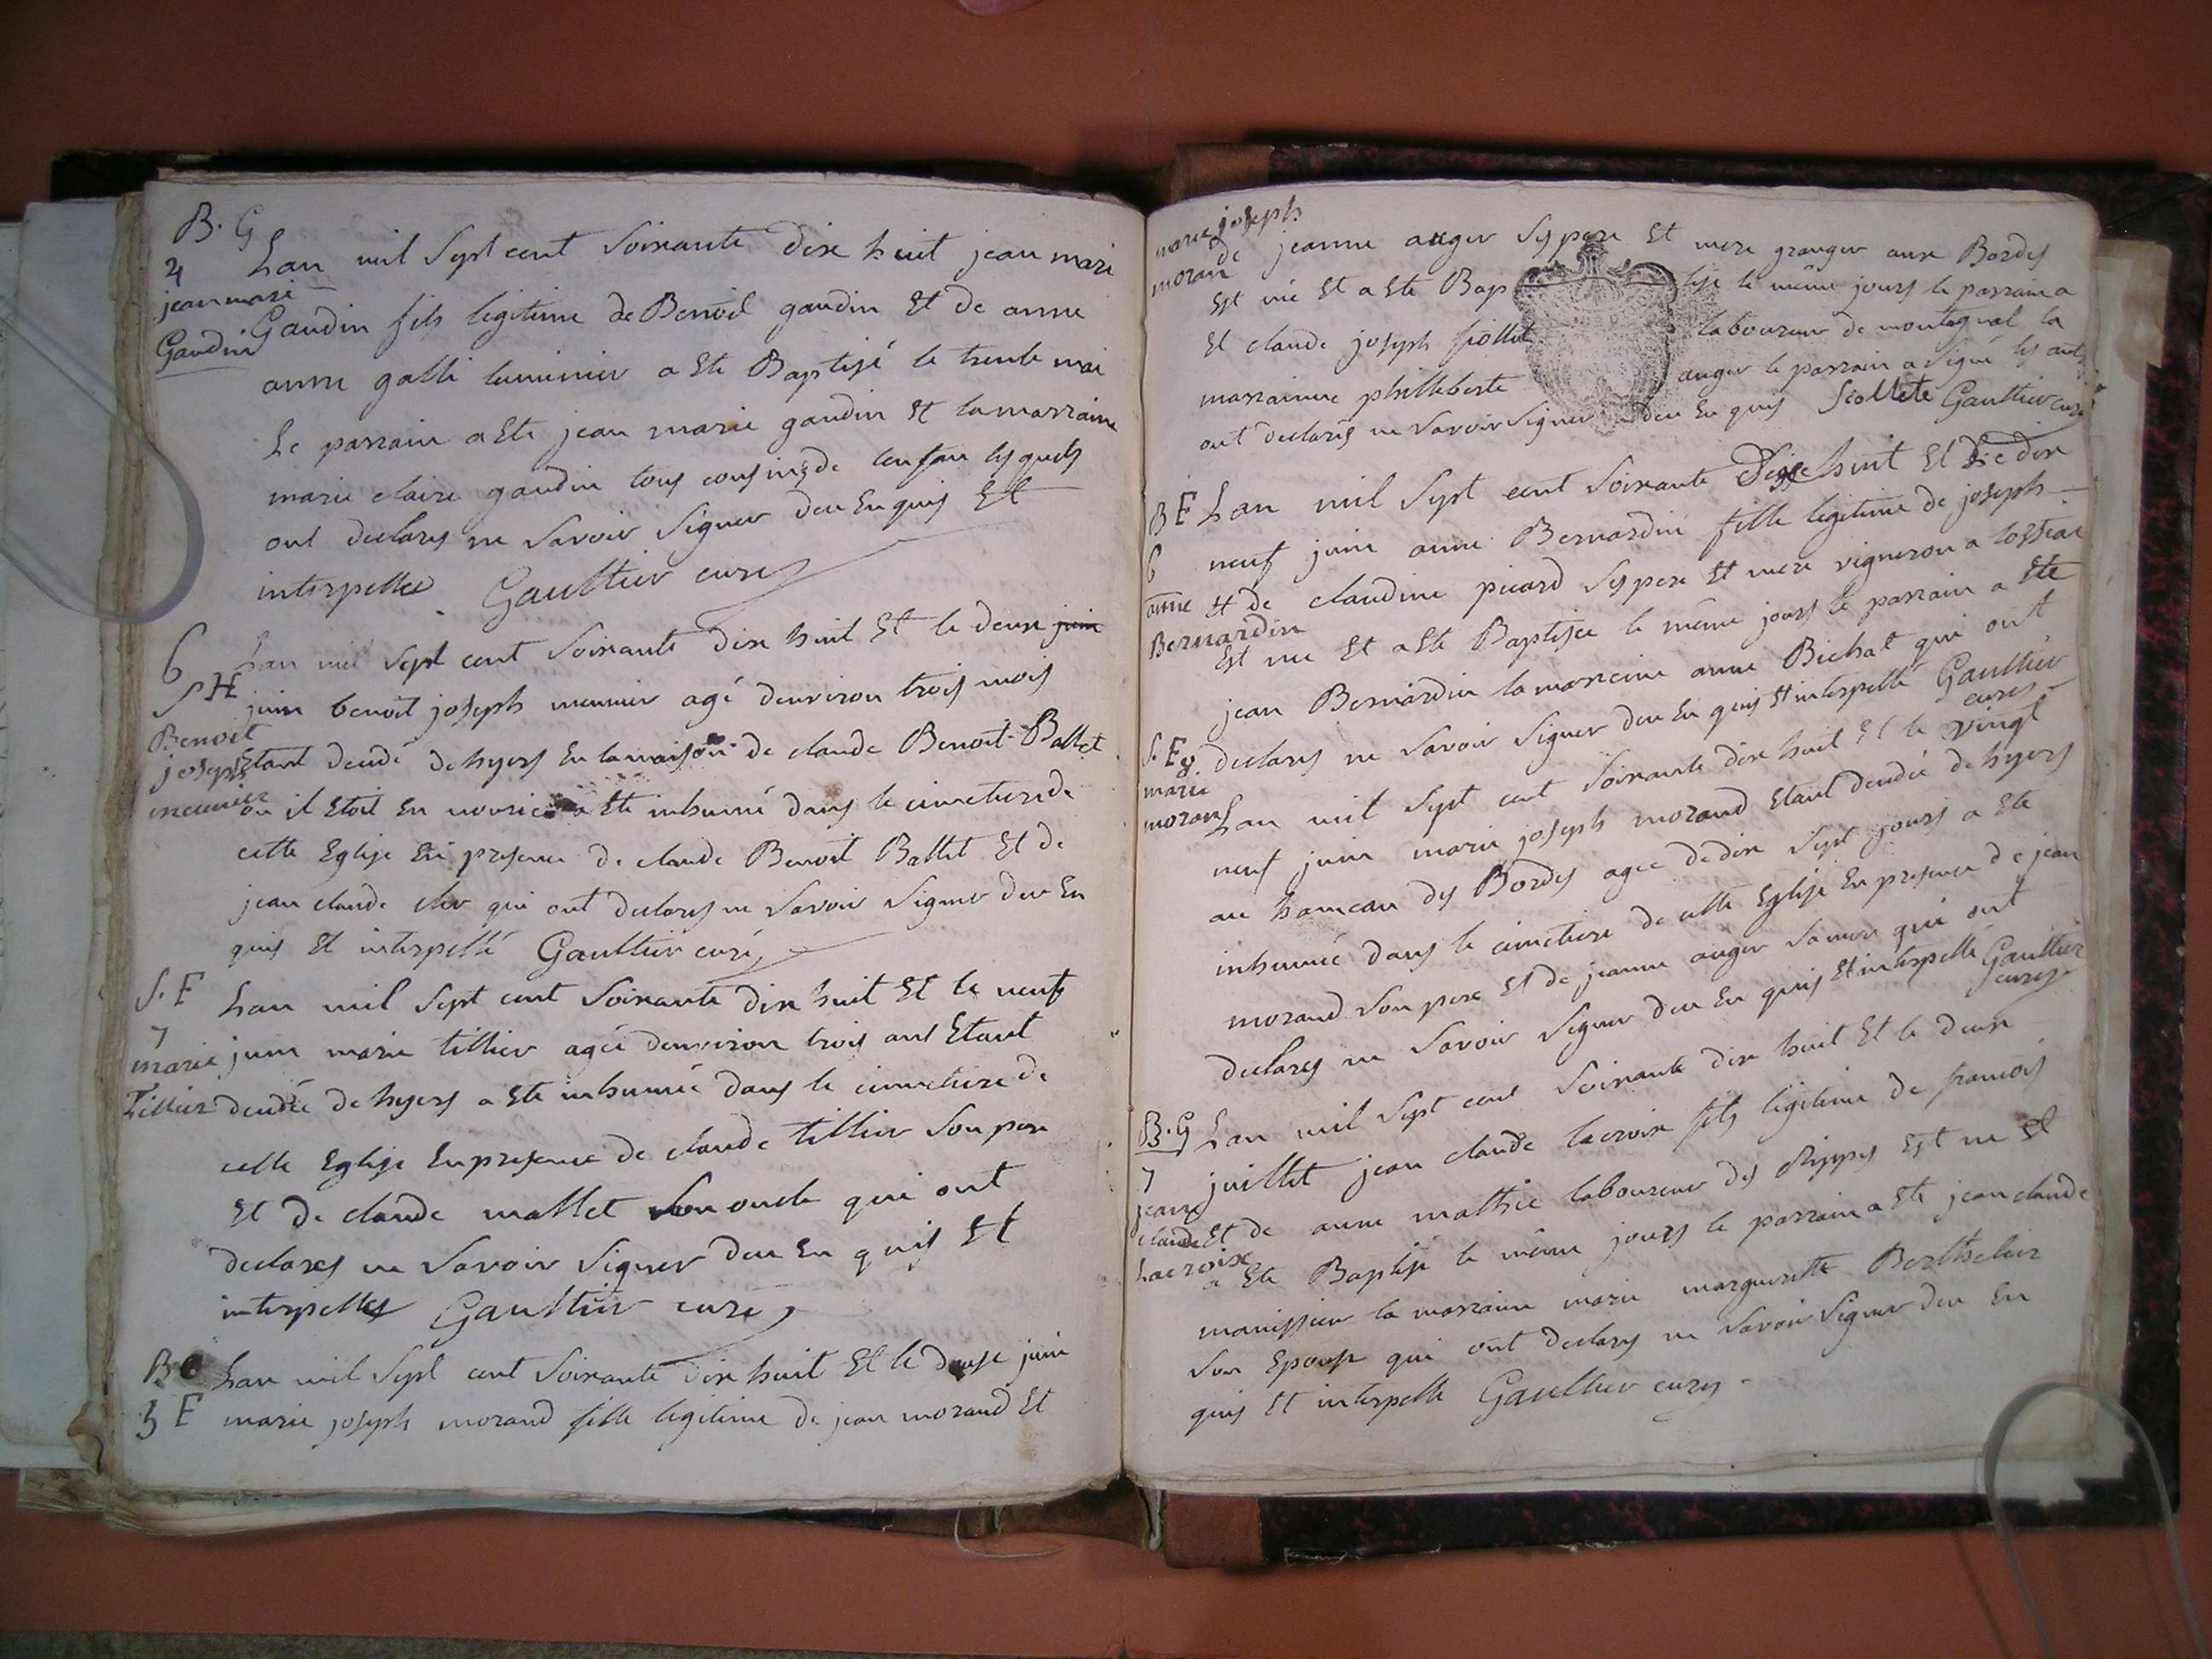 B. G
4
jean marie
Gandin
Lan mil Sept cent Soixante dix huit jean mari
Gandin fils legitime de Benoit gandin Et de anne
anne galli luminier a Ete Baptisé le trente mai
Le parrain a Ete jean marie gandin Et la marraine
marie claire gandin tous cousins de lenfan lesquels
ont declares ne Savoir Signer deu Enquis Et
interpelles Gaulttier curez
6
S H
Benoit
joseph
meunier
Lan mil Sept cent Soixante dix huit Et le deux juin
juin benoit joseph meunier agé denviron trois mois
Etant decedé dehyers En la maison de claude Benoit Ballet
ou il Etoit En nourice a Ete inhumé dans le cimetiere de
cette Eglise En presence de claude Benoit Ballet Et de
jean claude qui ont declares ne Savoir Signer deu En
quis Et interpellé Gaulttier curé
S. F
7
marie
Tillier
Lan mil Sept cent Soixante dix huit Et le neuf
juin marie tillier agée denviron trois ans Etant
decedée dehyers a Ete inhumée dans le cimetiere de
cette Eglise En presence de claude tillier Son pere
Et de claude mallet Son oncle qui ont
declares ne Savoir Signer deu En quis Et
interpelles Gaulttier curé
B
5 F
Lan mil Sept cent Soixante dix huit Et le douse juin
marie joseph morand fille legitime de jean morand Et
marie joseph
moran
de jeanne auger Ses pere Et mere granger aux Bordes
Est née Et a Ete Bap tise le même jours le parrain a
Et claude joseph laboureur de montagnat la
marrainne philleberte auger le parrain a Signé les autres
ont declarés ne Savoir Signer deu En quis Gaulttier curé
B F
6
anne
Bernardin
Lan mil Sept cent Soixante Dixe huit Et dix
neuf juin anne Bernardin fille legitime de joseph
Et de claudine picard Ses pere Et mere vigneron a
Est née Et a Ete Baptisée le même jours le parrain a Ete
jean Bernardin la marreine anne Bichat qui ont
declares ne Savoir Signer deu En quis Et interpellé Gaulttier
curez
S. F
8.
marie
morand
Lan mil Sept cent Soixante dix huit Et le vingt
neuf juin marie joseph morand Etant decedée dehyers
au hameau des Bordes agée de dix Sept jours a Ete
inhumée dans le cimetiere de cette Eglise En presence de jean
morand Son pere Et de jeanne auger Sa mere qui ont
declares ne Savoir Signer deu En quis Et interpellé Gaulttier
curez
B. G
7
jean
claude
Lacroix
Lan mil Sept cent Soixante dix huit Et le deux
juillet jean claude lacroix fils legitime de francois
Et de anne mathie laboureur des Rippes Est ne Et
a Ete Baptisé le même jours le parrain a Ete jean claude
manissier la marraine marie margueritte Berthelier
Son Epouse qui ont declares ne Savoir Signer deu En
quis Et interpelle Gaulttier curez